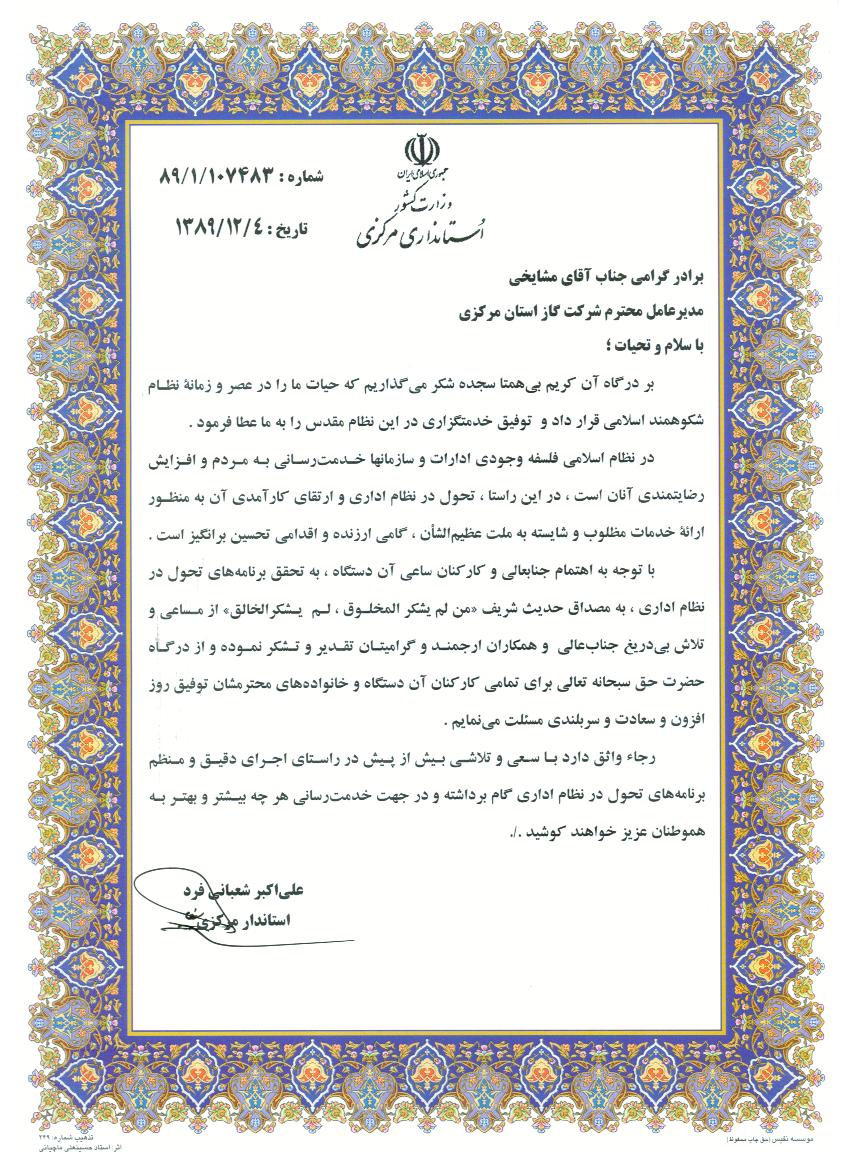 جمهوری اسلامی ایران
وزارت کشور
استانداری مرکزی
شماره : ۸۹/۱/۱۰۷۴۸۳
تاریخ : ۱۳۸۹/۱۲/٤
برادر گرامی جناب آقای مشایخی
مدیرعامل محترم شرکت گاز استان مرکزی
با سلام و تحیات ؛
بر درگاه آن کریم بی‌همتا سجده شکر می‌گذاریم که حیات ما را در عصر و زمانۀ نظام
شکوهمند اسلامی قرار داد و توفیق خدمتگزاری در این نظام مقدس را به ما عطا فرمود .
در نظام اسلامی فلسفه وجودی ادارات و سازمانها خدمت‌رسانی به مردم و افزایش
رضایتمندی آنان است ، در این راستا ، تحول در نظام اداری و ارتقای کارآمدی آن به منظور
ارائۀ خدمات مطلوب و شایسته به ملت عظیم‌الشأن ، گامی ارزنده و اقدامی تحسین برانگیز است .
با توجه به اهتمام جنابعالی و کارکنان ساعی آن دستگاه ، به تحقق برنامه‌های تحول در
نظام اداری ، به مصداق حدیث شریف «من لم یشکر المخلوق ، لم یشکرالخالق» از مساعی و
تلاش بی‌دریغ جناب‌عالی و همکاران ارجمند و گرامیتان تقدیر و تشکر نموده و از درگاه
حضرت حق سبحانه تعالی برای تمامی کارکنان آن دستگاه و خانواده‌های محترمشان توفیق روز
افزون و سعادت و سربلندی مسئلت می‌نمایم .
رجاء واثق دارد با سعی و تلاشی بیش از پیش در راستای اجرای دقیق و منظم
برنامه‌های تحول در نظام اداری گام برداشته و در جهت خدمت‌رسانی هر چه بیشتر و بهتر به
هموطنان عزیز خواهند کوشید ./.
علی‌اکبر شعبانی فرد
استاندار مرکزی
موسسه نفیس (حق چاپ محفوظ)
تذهیب شماره: ۲۴۹
اثر: استاد حسینعلی ماچیانی